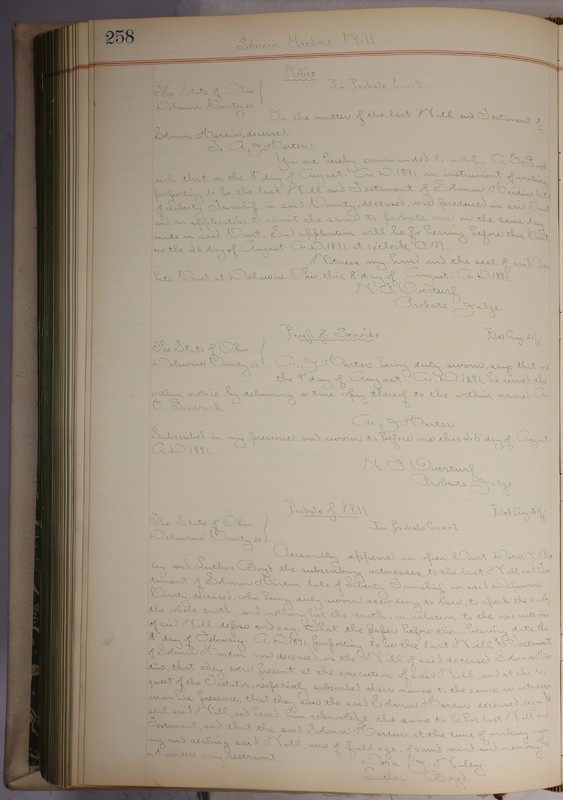 258
Hardins Will
Notice
The State of Ohio } In Probate Court.
Delaware County ss
In the matter of the last Will and Testament of
Edmon Hardin, deceased.
To A. J. Harter:
You are hereby commanded to notify A. E.
that on the 8" day of August A. D. 1891 an instrument of writing
purporting to be the last Will and Testament of Edmon Hardin late
of Liberty Township in said County, deceased, was produced in said Court
and an application to admit the same to probate was on the same day
made in said Court. Said application will be for hearing before this Court
on the 26 day of August A. D. 1891, at 1 o'clock P.M.
Witness my hand and the seal of said
Court, at Delaware Ohio, this 8" day of August A. D. 1891
N. F. Overturf
Probate Judge.
Proof of Service Filed Aug 26/91
The State of Ohio }
Delaware County ss
A. J. Harter being duly sworn, says that on
the 8" day of August A. D. 1891, he served the
within notice by delivering a true copy thereof to the within named A.
E. Goodrich
A. J. Harter
Subscribed in my presence and sworn to before me this 26" day of August
A. D. 1891
N. F. Overturf
Probate Judge
Probate of Will Filed Aug 26/91
The State of Ohio } In Probate Court
Delaware County ss
Personally appeared in open Court Dora J.
and Luther Boyd the subscribing witnesses to the last Will and
Testament of Edmon Hardin late of Liberty Township in said Delaware
County deceased, who being duly sworn according to law, to speak the truth,
the whole truth, and nothing but the truth, in relation to the execution
of said Will, depose and say, That the paper before them, bearing date the
day of February A. D. 1891 purporting to be the last Will & Testament
of Edmon Hardin now deceased, is the Will of said deceased Edmon
that they were present at the execution of said Will, and at the re-
quest of the Testator, respectively subscribed their names to the same as witnesses
in his presence; that they saw the said Edmon Hardin deceased sign &
seal said Will, and heard him acknowledge the same to be his last Will and
Testament; and that the said Edmon Hardin at the time of making, sign
ing and sealing said Will, was of full age, of sound mind and memory
under any restraint.
Dora J.
Luther Boyd.